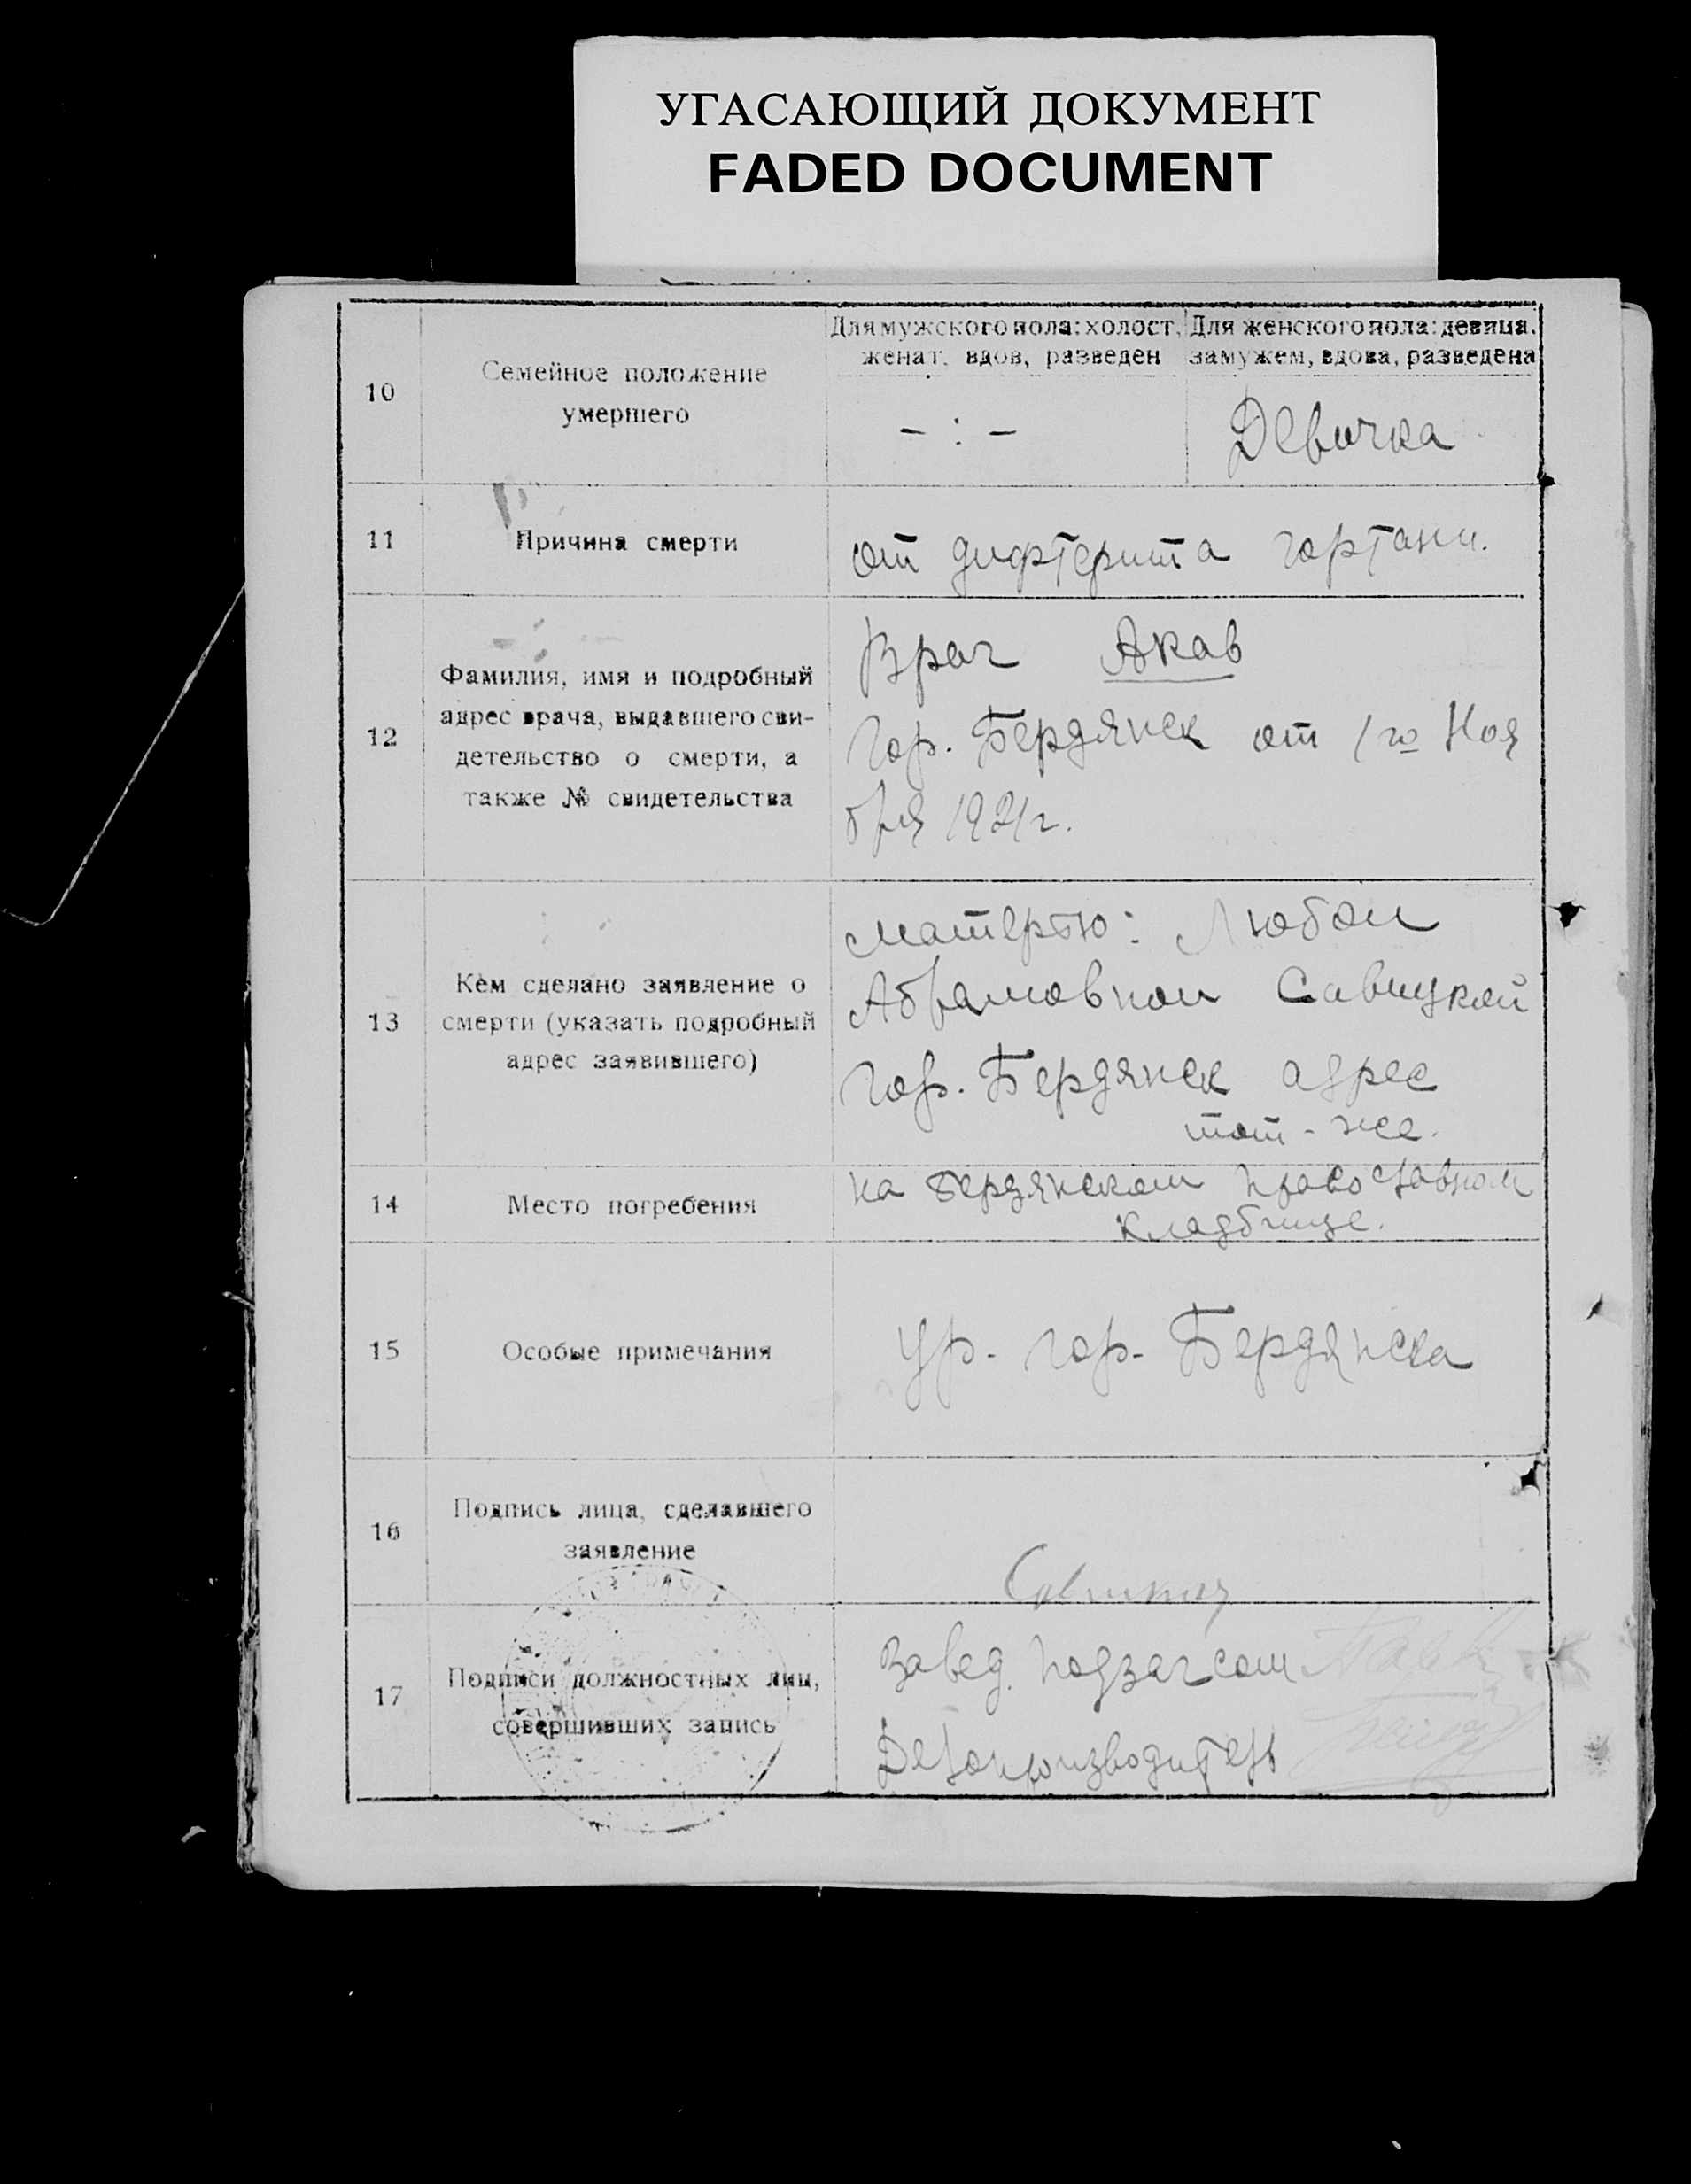 УГАСАЮЩИЙ ДОКУМЕНТ
FADED DOCUMENT
10
Семейное положение
умершего
Для мужского пола: холост,
женат, вдов, разведен
- : -
Для женского пола: девица,
замужем, вдова, разведена
Девочка
11
Причина смерти
от дифтерита гортани.
12
Фамилия, имя и подробный
адрес врача, выдавшего сви-
детельство о смерти, а
также № свидетельства
Врач Акав
Гор. Бердянск от 1го Ноя
бря 1921г.
13
Кем сделано заявление о
смерти (указать подробный
адрес заявившего)
матерью: Любой
Абрамовной Савицкой
Гор. Бердянск адрес
тот-же.
14
Место погребения
на Бердянском православном
кладбище.
15
Особые примечания
ур. гор. Бердянска
16
Подпись лица, сделавшего
заявление
17
Подписи должностных лиц,
совершивших запись
Завед. подзагсом
Делопроизводитель